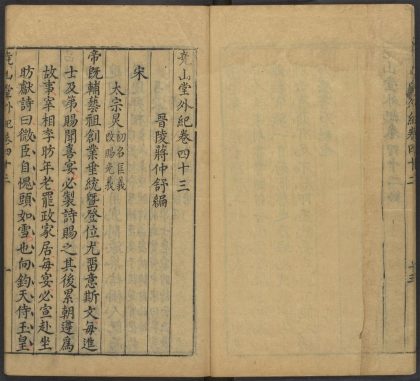 堯山堂外紀卷四十三
晉陵蔣仲舒編
宋
太宗炅
初名匡義
改賜光義
帝既輔藝祖創業垂統暨登位尤畱意斯文每進
士及第賜聞喜宴必製詩賜之其後累朝遵爲
故事宰相李昉年老罷政家居每宴必宣赴坐
昉獻詩曰微臣自愧頭如雪也向鈞天侍玉皇
堯山堂外紀卷四十三